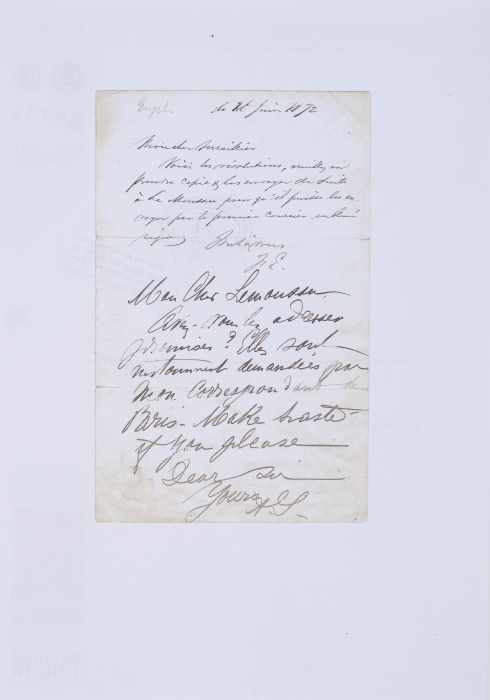 Engels le 21 juin 1872
Mon cher Serraillier
Voici les résolutions, veuillez en
prendre copie & les envoyer de suite
à Le Moussu pour qu'il puisse les en-
voyer par le premier courrier
Tout à vous
F. E.
Mon Cher Lemoussu.
Avez-vous les adresses
promises? Elles sont
instamment demandées par
mon correspondant de
Paris. Make haste
if you please
Dear sir
Yours A. S.